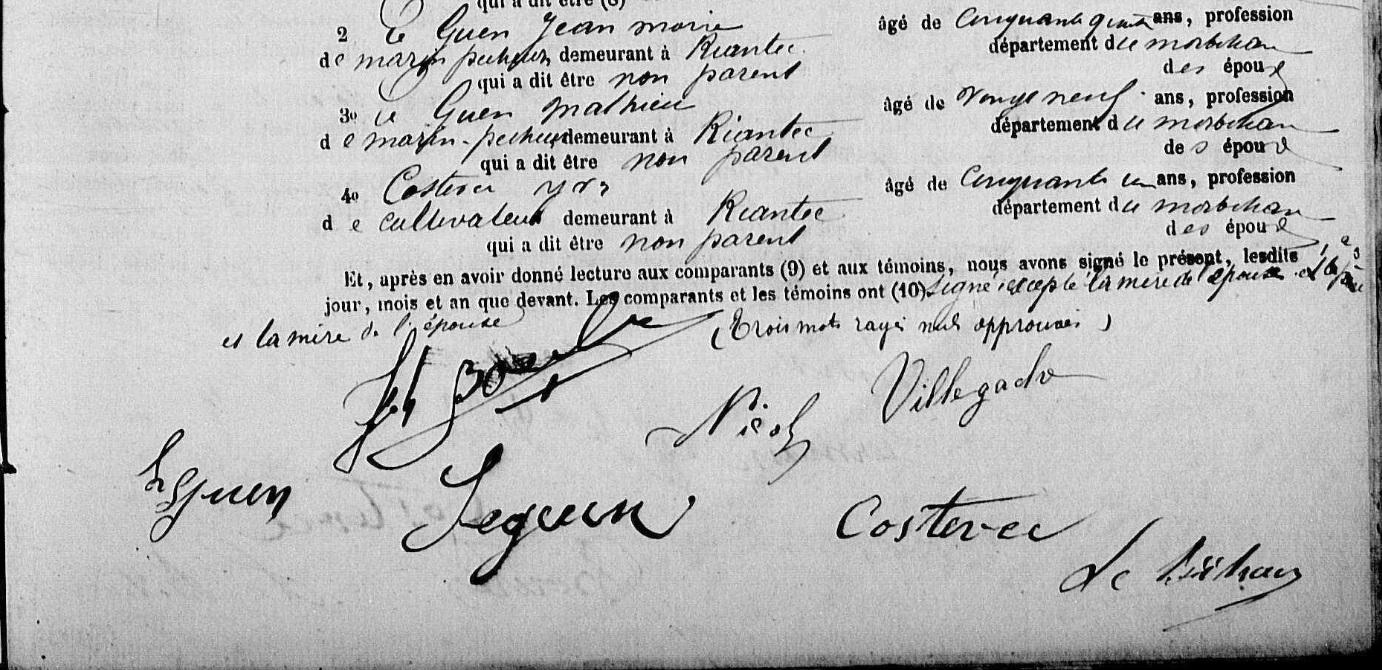 qui a dit être (8)
2 Le Guen Jean marie âgé de Cinquante quatre ans, profession
de marin pecheur demeurant à Riantec département du morbihan
qui a dit être non parent des époux
3e Le Guen Mathieu âgé de vingt neuf ans, profession
de marin-pecheur demeurant à Riantec département du morbihan
qui a dit être non parent des époux
4e Costevec Yves âgé de Cinquante un ans, profession
de cultivateur demeurant à Riantec département du morbihan
qui a dit être non parent des époux
Et, après en avoir donné lecture aux comparants (9) et aux témoins, nous avons signé le présent, lesdits
jour, mois et an que devant. Les comparants et les témoins ont (10) signé excepté la mère de l'épouse
et la mère de l'épouse (trois mots rayés nuls approuvés)
Nicol Villegado
Leguen Leguen Costevec